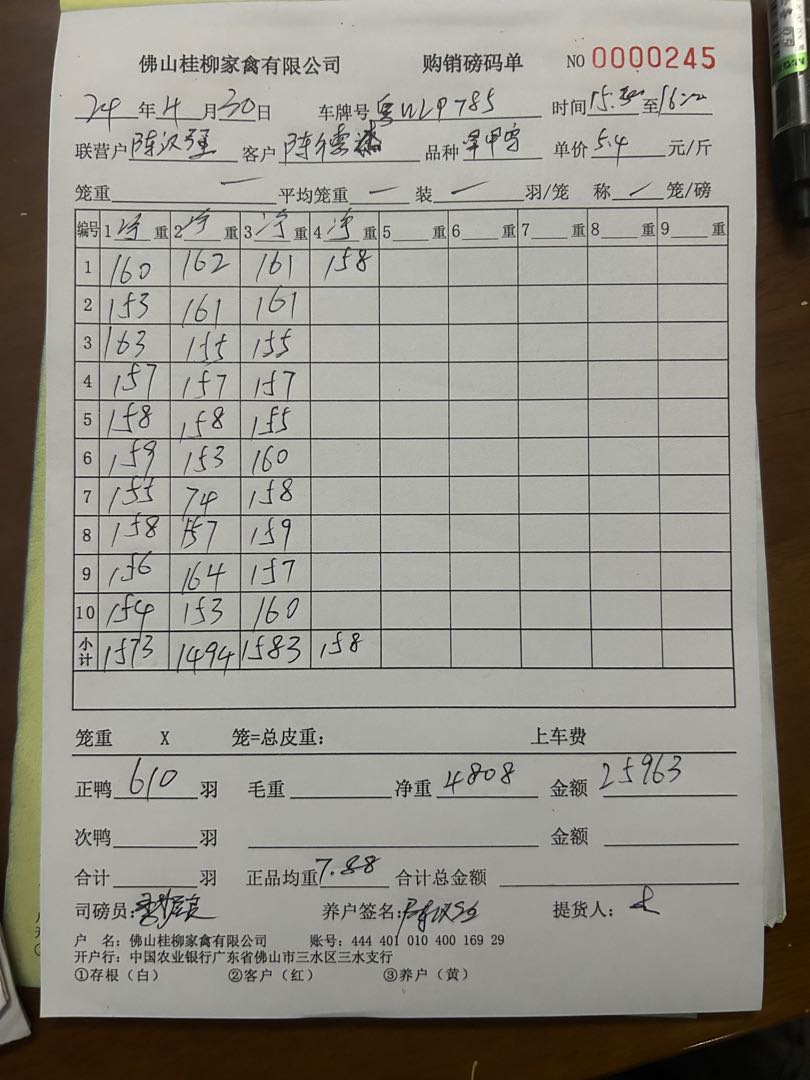 佛山桂柳家禽有限公司 购销磅码单 NO 0000245
24 年 4 月 30 日 车牌号 粤WL9785 时间 15: 至 16:
联营户 陈汉强 客户 陈德 品种 单价 5.4 元/斤
笼重 一 平均笼重 一 装 一 羽/笼 称 一 笼/磅
编号 1 净 重 2 净 重 3 净 重 4 净 重 5 重 6 重 7 重 8 重 9 重
1 160 162 161 158
2 153 161 161
3 163 155 155
4 157 157 157
5 158 158 155
6 159 153 160
7 155 74 158
8 158 157 159
9 156 164 157
10 154 153 160
小计 1573 1494 1583 158
笼重 X 笼=总皮重： 上车费
正鸭 610 羽 毛重 净重 4808 金额 25963
次鸭 羽 金额
合计 羽 正品均重 7.88 合计总金额
司磅员： 养户签名： 提货人：
户 名：佛山桂柳家禽有限公司 账号：444 401 010 400 169 29
开户行：中国农业银行广东省佛山市三水区三水支行
①存根（白） ②客户（红） ③养户（黄）